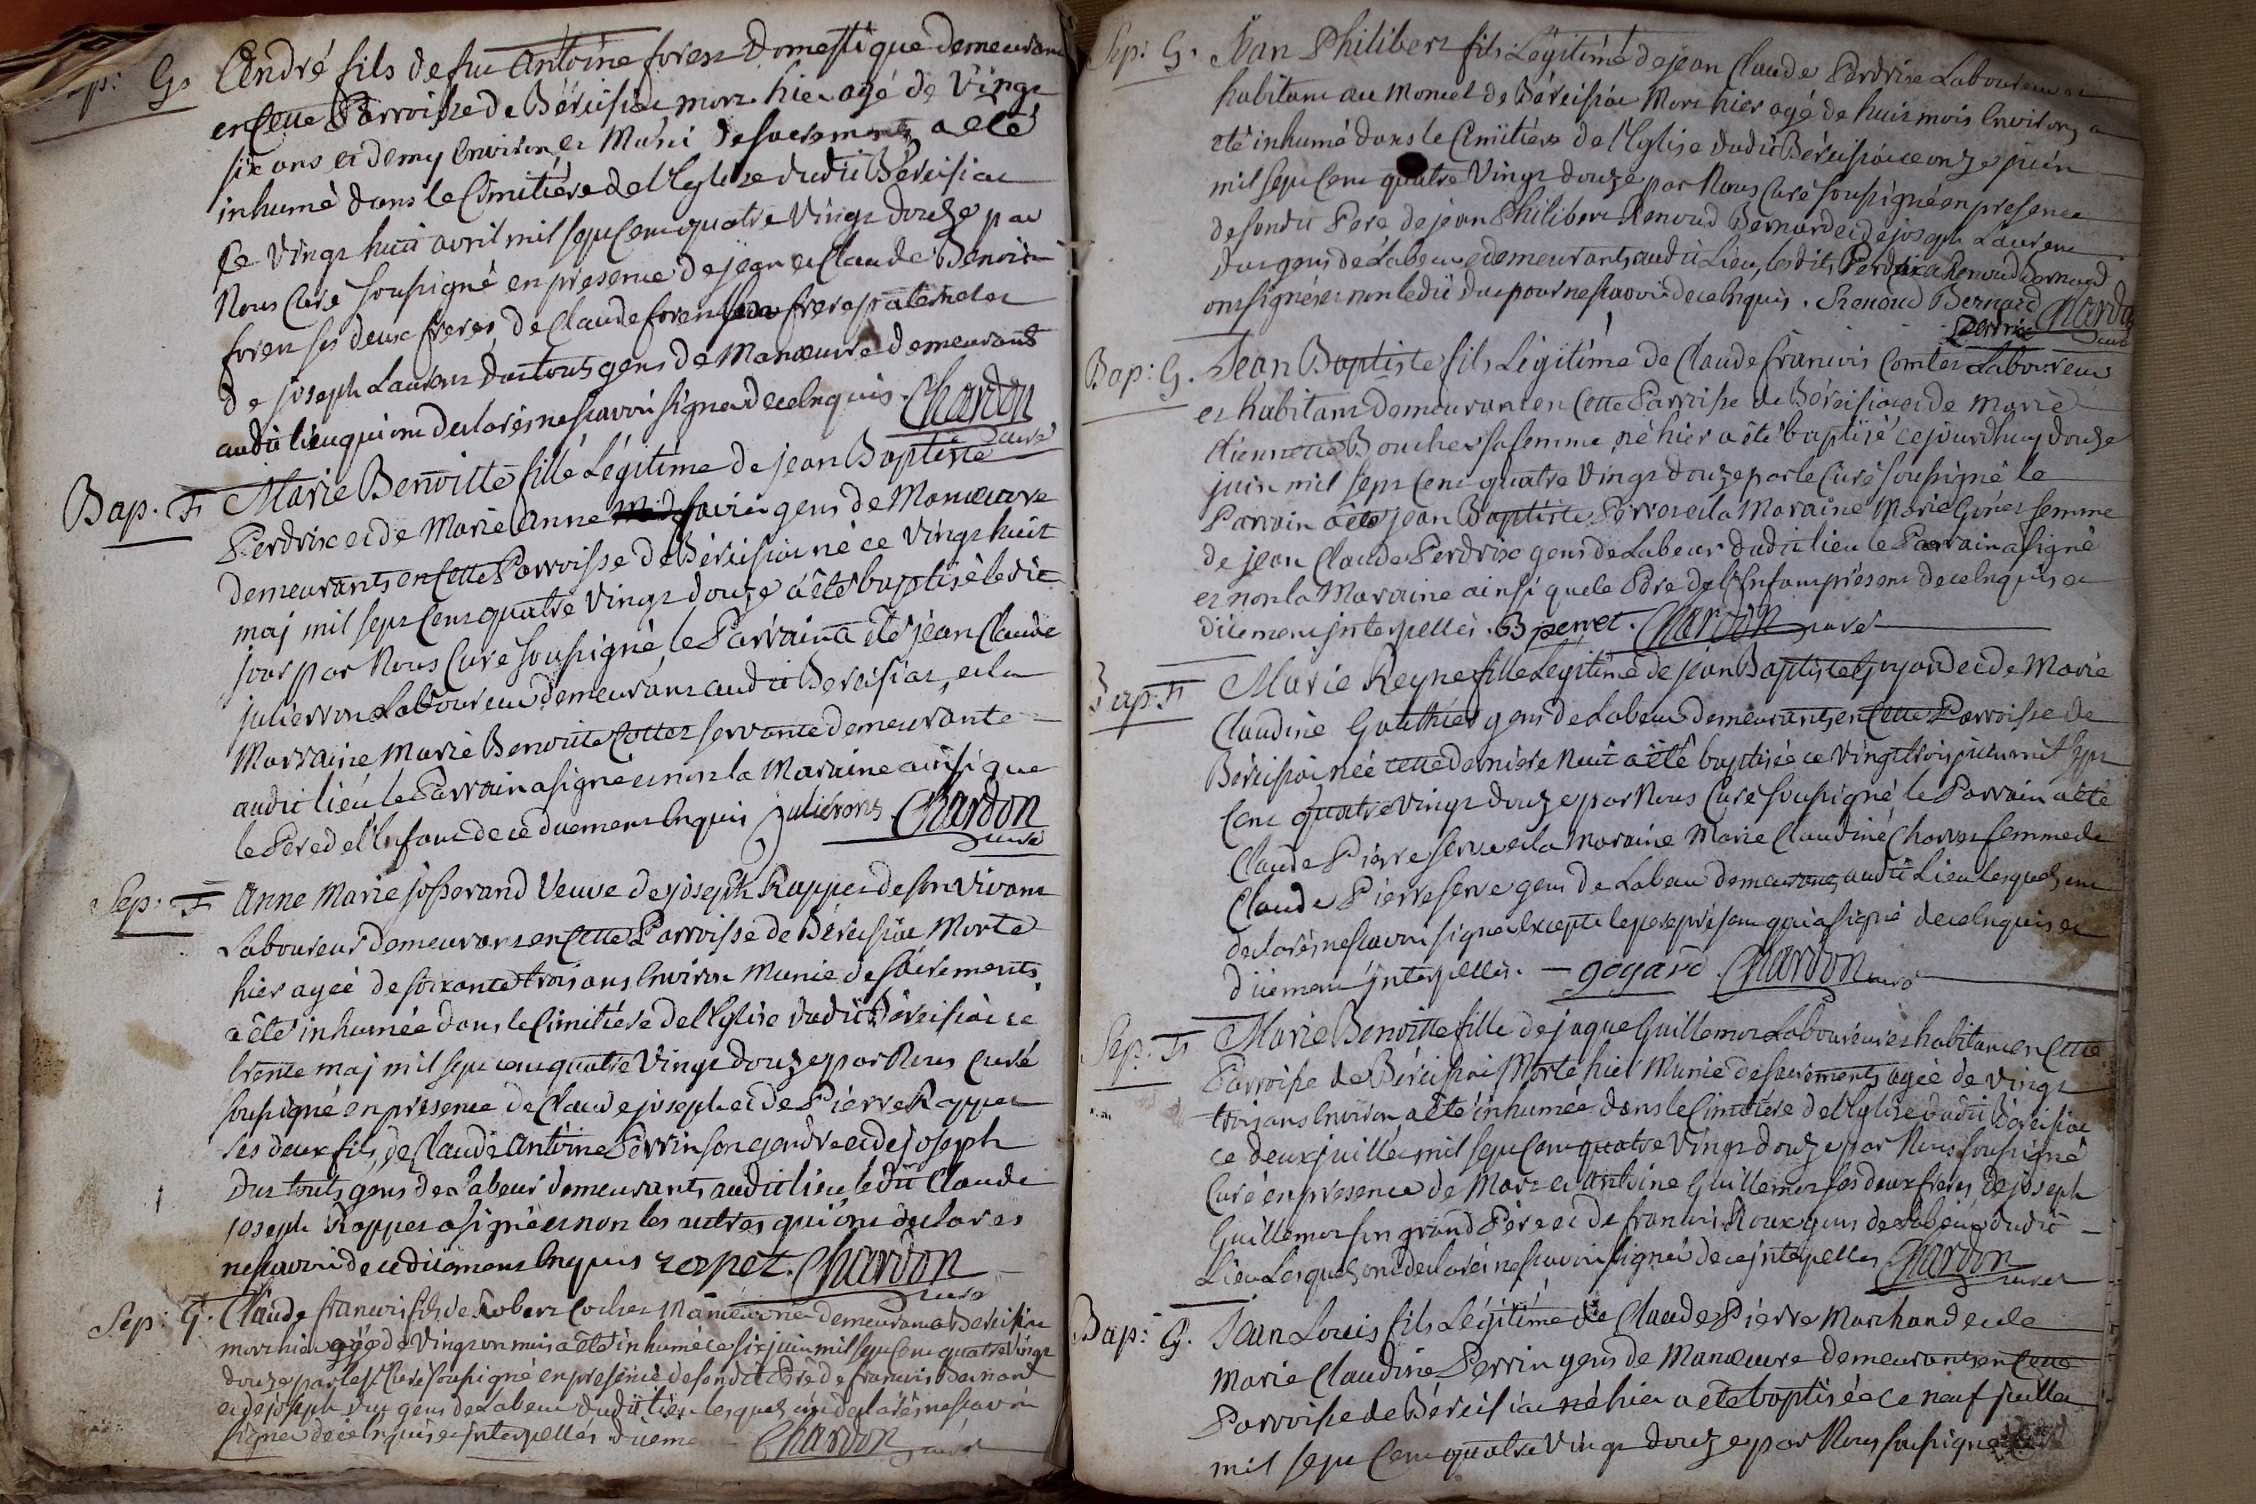 Sep: G. André fils de feu Antoine foren Domestique demeurant
en Cette Parroisse de Béreisiat mort hier agé de Vingt
six ans et demy Environ et Muni de sacrements, a été
inhumé dans le Cimitiére de l'Eglise dudit Béreisiat
ce Vingt huit avril mil sept Cent quatre Vingt douze par
Nous Curé soussigné en presence de jean et Claude Benoit
foren ses deux freres, de Claude foren frere paternel et
de joseph Laurent Duc touts gens de Manœuvre demeurants
audit lieu qui ont declarés ne sçavoir signer de ce Enquis. Chardon
curé
Bap. F. Marie Benoitte fille Légitime de jean Baptiste
Perdrix et de Marie Anne gens de Manœuvre
demeurants en Cette Parroisse de Béreisiat né ce Vingt huit
maj mil sept Cent quatre Vingt douze a été baptisé le dit
jour par Nous Curé soussigné, le Parrain a été jean Claude
julierron Laboureur demeurant audit Bereisiat, et la
Marraine Marie Benoitte Cottet servante demeurante
audit lieu le Parrain a signé et non la Maraine ainsi que
le Pere de l'Enfant de ce duement Enquis julierons Chardon
curé
Sep: F. Anne Marie josserand Veuve de joseph Rappet de son Vivant
Laboureur demeurant en Cette Parroisse de Béreisiat Morte
hier ageé de soixante et trois ans Environ Munie de sacrements,
a été inhumée dans le Cimitiére de l'Eglise dudit Béreisiat ce
trente maj mil sept cent quatre Vingt douze par Nous Curé
soussigné en presence de Claude joseph et de Piérre Rappet
ses deux fils, de Claude Antoine Perrin son gendre et de joseph
Duc touts gens de Labeur demeurants audit lieu ledit Claude
joseph Rappet a signé et non les autres qui ont declarés
ne sçavoir de ce düement Enquis rapet. Chardon
curé
Sep: G. Claude francois fils de Robert Cochet Manœuvrier demeurant a Béreisiat
mort hier agé de Vingt un mois a été inhumé ce six juin mil sept Cent quatre Vingt
douze par le Curé soussigné en presence de sondit Pere de francois Bernard
et de joseph Duc gens de Labeur dudit lieu lesquels ont declarés ne sçavoir
signer de ce Enquis et interpellés Chardon curé
Sep: G. Jean Philibert fils Légitime de jean Claude Perdrix Laboureur et
habitant au Moncel de Béreisiat Mort hier agé de huit mois Environ, a
été inhumé dans le Cimitiére de l'Eglise dudit Béreisiat ce onze juin
mil sept Cent quatre Vingt douze par Nous Curé soussigné en presence
de sondit Pere de jean Philibert Renoud Bernard et de joseph Laurent
Duc gens de Labeur demeurants audit Lieu, lesdits Perdrix et Renoud Bernard
ont signés et non ledit Duc pour ne sçavoir de ce Enquis. Renoud Bernard
Perdrix Chardon
curé
Bap: G. Jean Baptiste fils Légitime de Claude francois Comtet Laboureur
et habitant demeurant en Cette Parroisse de Béreisiat et de Marie
Etiennette Boucher sa femme, né hier a été baptisé ce jourdhuy douze
juin mil sept Cent quatre Vingt douze par le Curé soussigné le
Parrain a été jean Baptiste Perret et la Maraine Marie femme
de jean Claude Perdrix gens de Labeur dudit lieu le Parrain a signé
et non la Maraine ainsi que le Pére de l'Enfant présent de ce Enquis et
düement jnterpellés. B perret. Chardon curé
Bap: F. Marie Reyne fille Légitime de jean Baptiste Goyard et de Marie
Claudine Gauthier gens de Labeur demeurants en Cette Parroisse de
Béreisiat née cette derniére Nuit a été baptisée ce Vingt trois juin mil sept
Cent quatre Vingt douze par Nous Curé soussigné le Parrain a été
Claude Piérre serve et la Maraine Marie Claudine Charvet femme de
Claude Piérre serve gens de Labeur demeurants audit Lieu lesquels ont
declarés ne sçavoir signer Excepté le pere présent qui a signé de ce Enquis et
düement jnterpellés. — goyard Chardon curé
Sep: F. Marie Benoitte fille de jaque Guillemot Laboureur et habitant en Cette
Parroisse de Béreisiat Morte hier Munie de sacrements, ageé de vingt
trois ans Environ, a été inhumée dans le Cimitiére de l'Eglise dudit Béreisiat
ce deux juillet mil sept Cent quatre Vingt douze par Nous soussigné
Curé en presence de Marc et Antoine Guillemot ses deux freres, de joseph
Guillemot son grand Pére et de francois Roux gens de Labeur dudit
Lieu Lesquels ont declarés ne sçavoir signer de ce jnterpellés Chardon
curé
Bap: G. Jean Louis fils Légitime de Claude Piérre Marchand et de
Marie Claudine Perrin gens de Manœuvre demeurants en Cette
Parroisse de Béreisiat né hier a été baptisé ce neuf juillet
mil sept Cent quatre Vingt douze par Nous soussigné